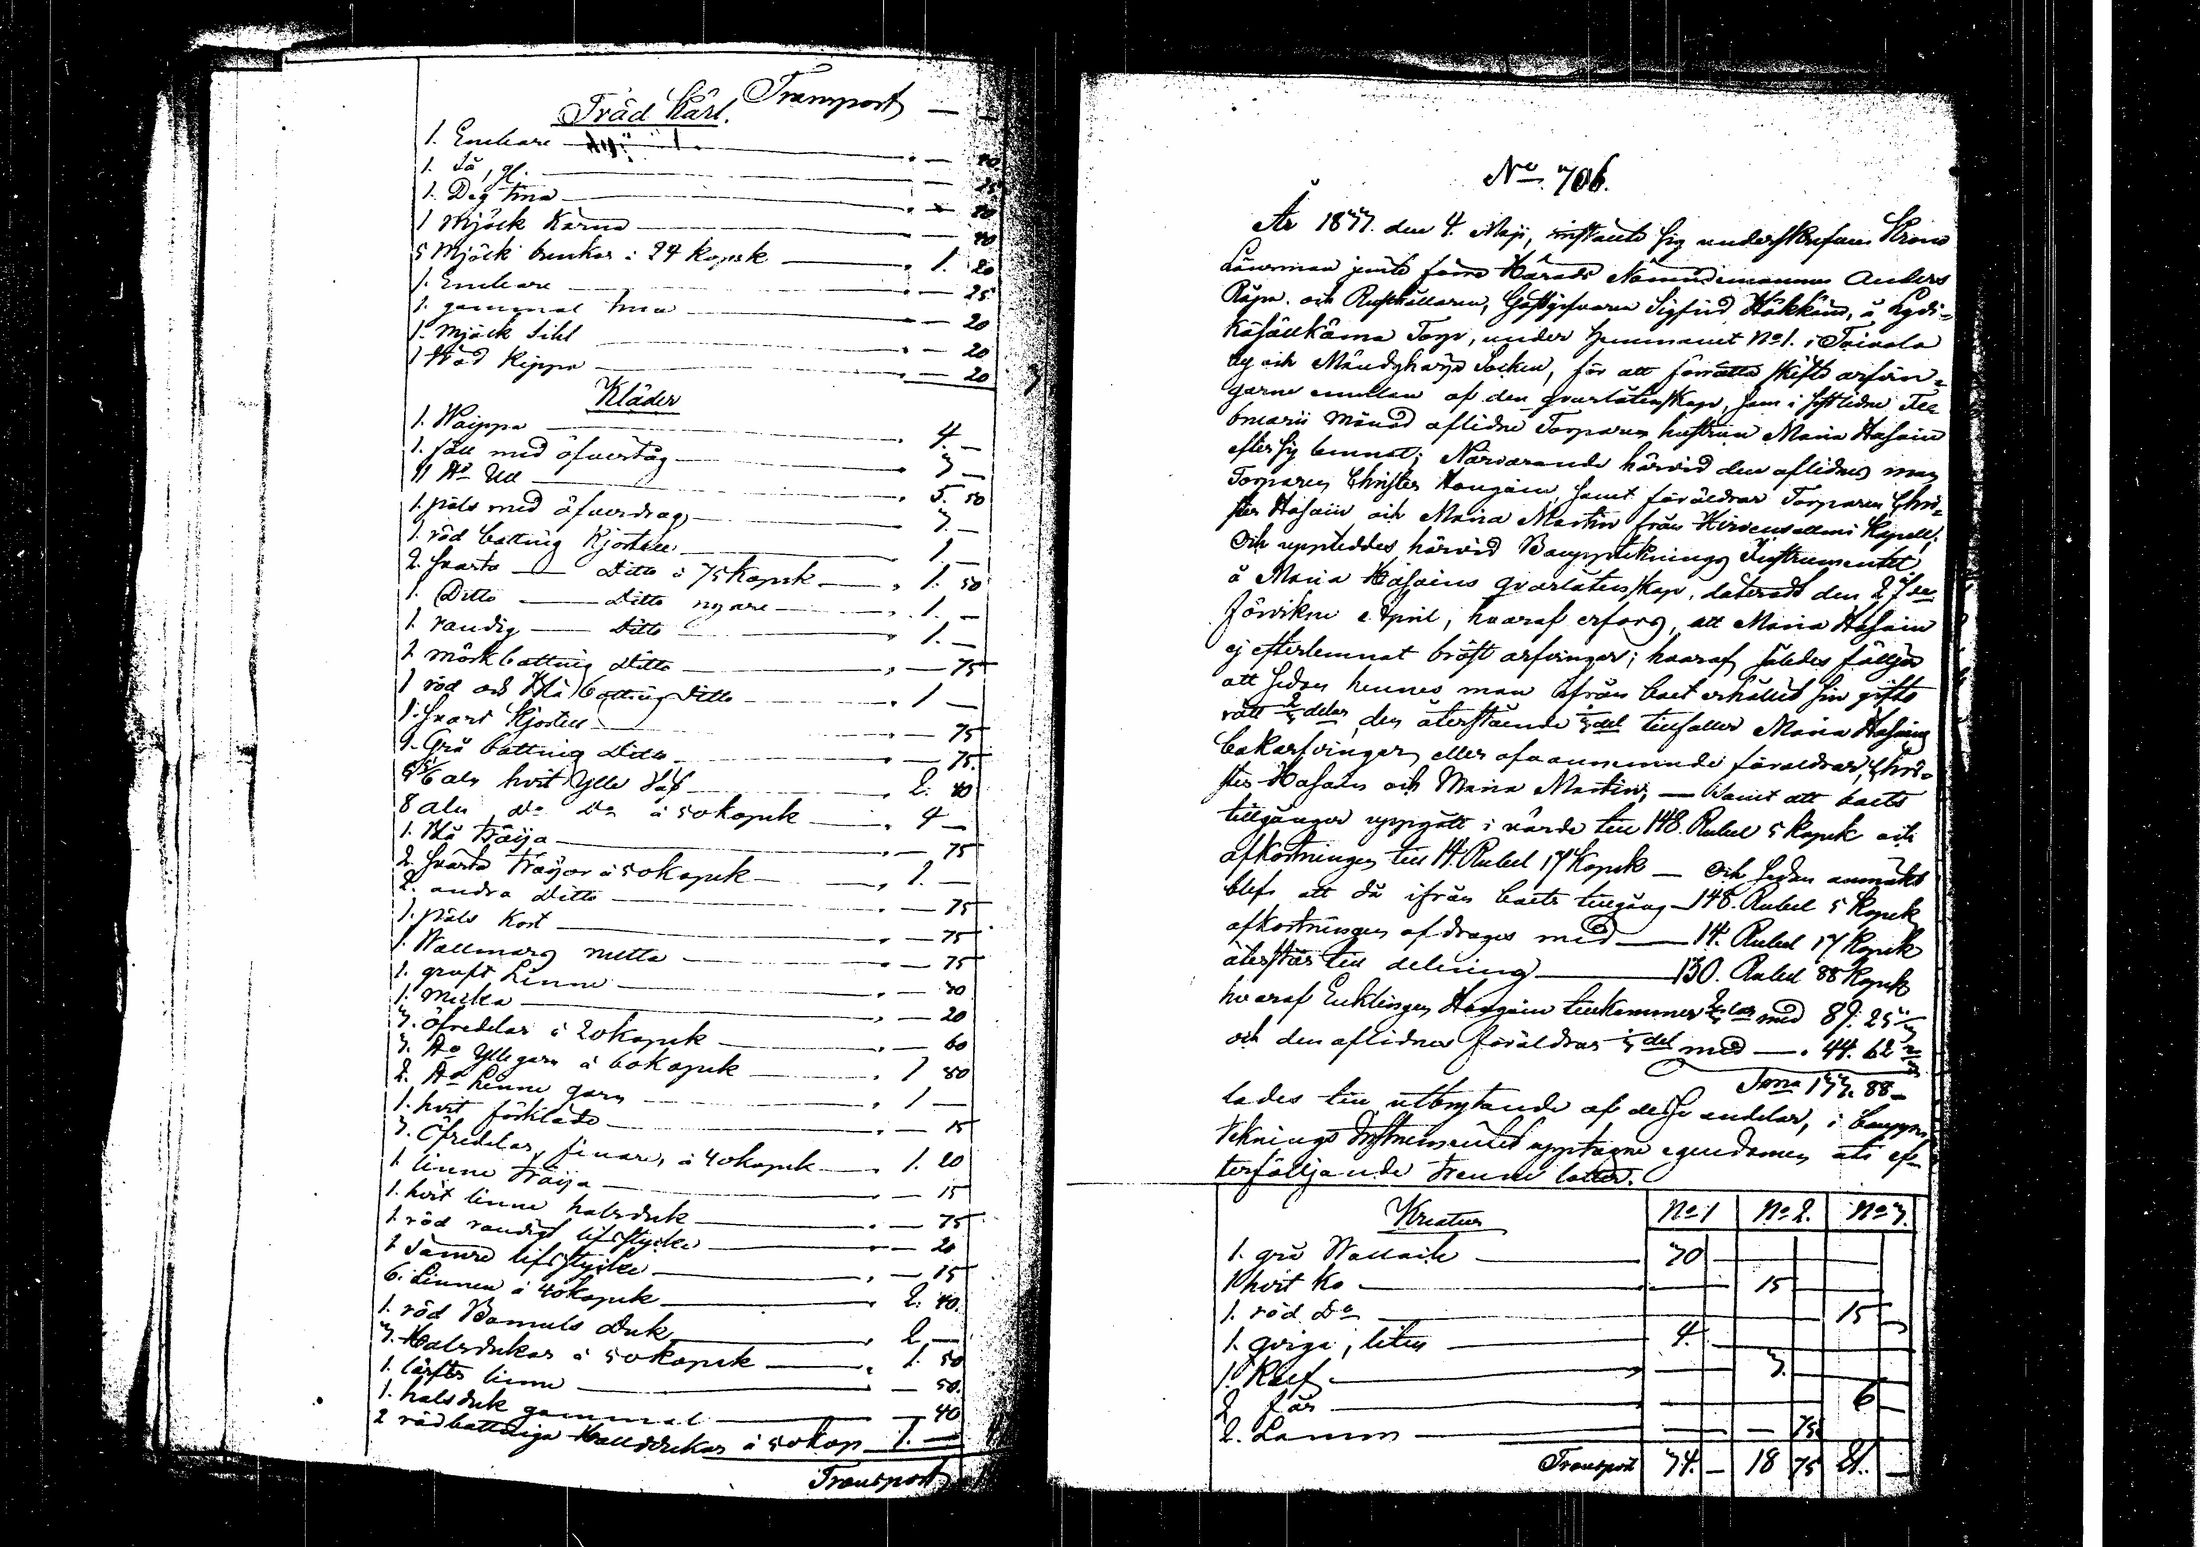 Transport
Träd Kärl.
1. Embare — 40
1. Så, gl. — 25
1. Deg tina — 20
1 Mjölk Kärna — 40
5 Mjölk bunkar à 24 kopek — 1. 20
1. Embare — 25
1. gammal tina — 20
1. Mjölk Sihl — 20
1 Kippa — 20
Kläder
1. Waippa — 4. —
1. fäll med öfvertåg — 3 —
11 ℔ Ull — 5. 50
1. päls med öfverdrag — 3 —
1. röd battnig Kjortell — 1 —
2. svarta — Ditto à 75 Kopek — 1. 50
1. Ditto — Ditto nyare — 1. —
1. randig — Ditto — 1. —
1 mörk battnig Ditto — 75
1 röd och blå battnig Ditto — 1 —
1. Svart Kjortell — 75
1. Grå battnig Ditto — 75.
aln hvit Ylle — 2. 40
8 aln Do Do à 50 kopek — 4 —
1. blå tröija — 75
2. Svarta tröijor à 50 kopek — 1. —
2. andra Ditto — 75
1. päls Kort — 75
1. Wallmars — 75
1. groft Linne — 40
1. — 20
3. Öfredelar à 20 kopek — 60
3. ℔ Yllegarn à 60 kopek — 1 80
2. ℔ Linne garn — 1 —
1. hvit förkläde — 15
3. Öfredelar, finare, à 40 kopek — 1. 20
1 linne tröija — 15
1. hvit linne halsduk — 75
1. röd randigt lifstycke — 20
1 sämre lifstycke — 15
6. Linnen à 40 kopek — 2. 40.
1. röd Bomuls duk — 2 —
3. Halsdukar à 50 kopek — 1. 50
1. lärfts linne — 50.
1. halsduk gammal — 40
2 rödbattniga Halsdukar à 50 kop — 1. —
Transport
No. 706.
År 1833. den 4. Maji, instälte sig underskrefven Krono
Länsman jemte förre Härads Nämndemannen Anders
Räpo. och Rusthållaren, Gästgifvaren Sigfrid Häkkäin, å
Torp, under hemmanet No 1. i Toivola
by och Mändyharju Socken, för att förrätta skifte arfvin-
garne emellan af den qvarlåtenskap, som i sistledne Fe-
bruarii Månad aflidne Torparen hustrun Maria Hasain
efter sig lemnat; Närvarande härvid den aflidnes man
Torparen Christer Hongain, samt föräldrar Torparen Chri-
ster Hasain och Maria Martin från Hirvensalmi Kapell;
Och uppteddes härvid Bouppteknings Instrumentet
å Maria Hasains qvarlåtenskap, dateradt den 27de
förvikne April, hvaraf erfors, att Maria Hasain
ej efterlemnat bröst arfvingar; hvaraf således följer
att sedan hennes man ifrån boet erhållit sin gifto
rätt 2/3 delar, den återstående 1/3 del tillfaller Maria Hasains
bakarfvingar eller ofvannemnde föräldrar, Chri-
ster Hasain och Maria Martin; — Samt att boets
tillgångar uppgått i värde till 148. Rubel 5 Kopek och
afkortningen till 14. Rubel 17 Kopek — Och sedan anmärkt
blef att då ifrån boets tillgång — 148. Rubel 5 Kopek
afkortningen afdrages med — 14. Rubel 17 Kopek
återstår till delning — 130. Rubel 88 Kopek
hvaraf Enklingen Hongain tillkommer 2/3 delar med 89. 25 1/3
och den aflidnes föräldrar 1/3 del med — 44. 62 2/3
Sma 133. 88 —
lades till utbrytande af desse andelar, i boupp-
teknings Instrumentet upptagne egendomen uti ef-
terföljande trenne lotter.
Kreatur No 1 No 2. No 3.
1. grå Wallack — 30
1 hvit Ko — 15
1. röd Do — 15
1. qviga, liten — 4.
1. Kalf — 3.
2 får — 6
2. Lamm — 75
Transport 34. — 18 75 21. —